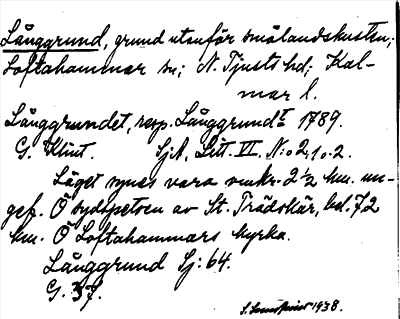 Långgrund, grund utanför smålandskusten;
Loftahammar sn; N. Tjusts hd; Kal-
mar l.
Långgrundet, resp. Långgrundt 1789.
G. Klint. Sj.A, Litt. VI. N:o 2, 1 o. 2.
Läget synes vara omkr. 2 1/2 km. un-
gef. Ö sydspetsen av St. Trädskär, bel. 7,2
km. Ö Loftahammars kyrka.
Långgrund Sj: 64.
G. 37.
1938.